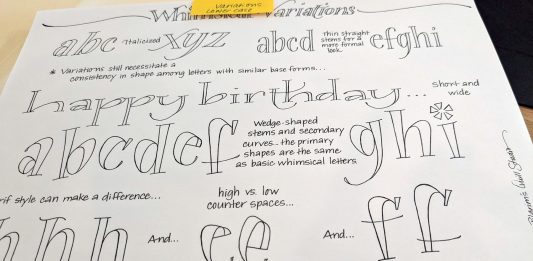 Whimsical Variations
Variations
Lower case
abc Italicized xyz abcd Thin straight
stems for a
more formal
look. efghi
* Variations still necessitate a
consistency in shape among letters with similar base forms...
happy birthday... Short and
wide
abcdef Wedge-shaped
stems and secondary
curves... the primary
shapes are the same
as basic whimsical letters. ghi
rif style can make a difference...
high vs. low
counter spaces...
h h h And... e.e And... f f